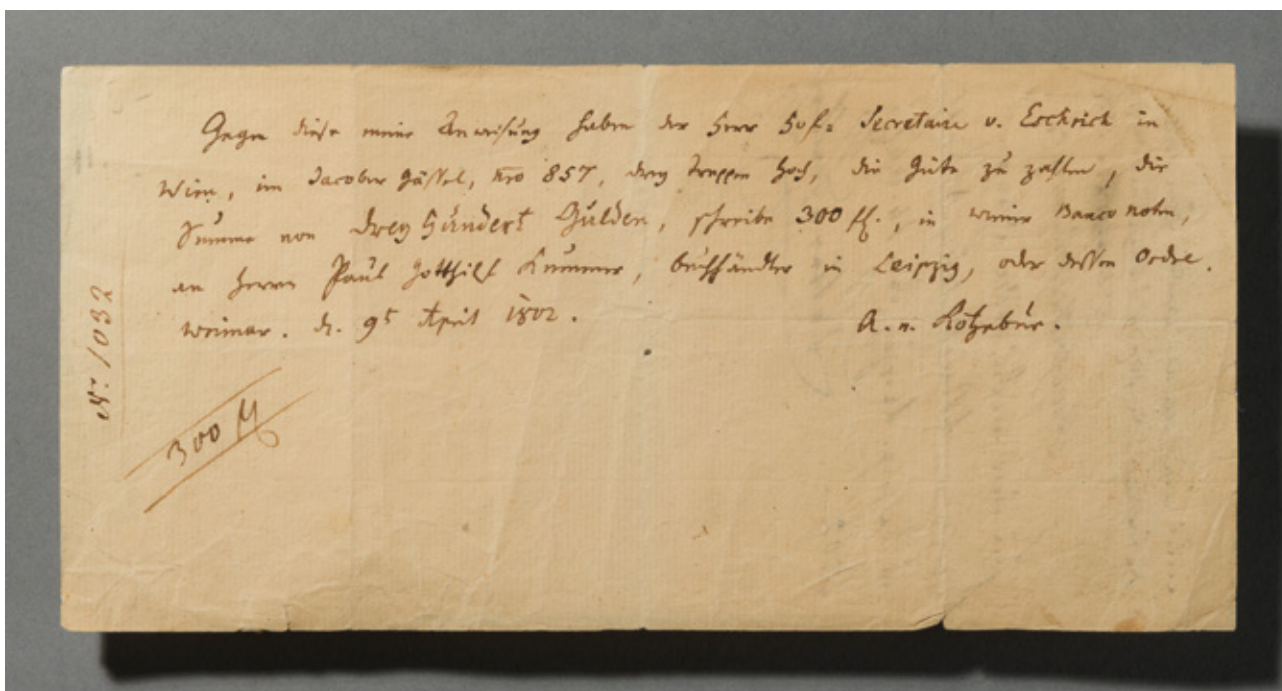 Gegen diese meine Anweisung haben der Herr Hof= Secretaire v. Eschrich in
Wien, im Jacober Gässel, Nro 857, drey Treppen hoch, die Güte zu zahlen, die
Summe von Drey Hundert Gulden, schreibe 300 fl., in Wiener Banco noten,
an Herrn Paul Gotthilf Kummer, Buchhändler in Leipzig, oder dessen Ordre.
Weimar. d. 9t April 1802.
A. v. Kotzebue.
No. 1032
300 fl